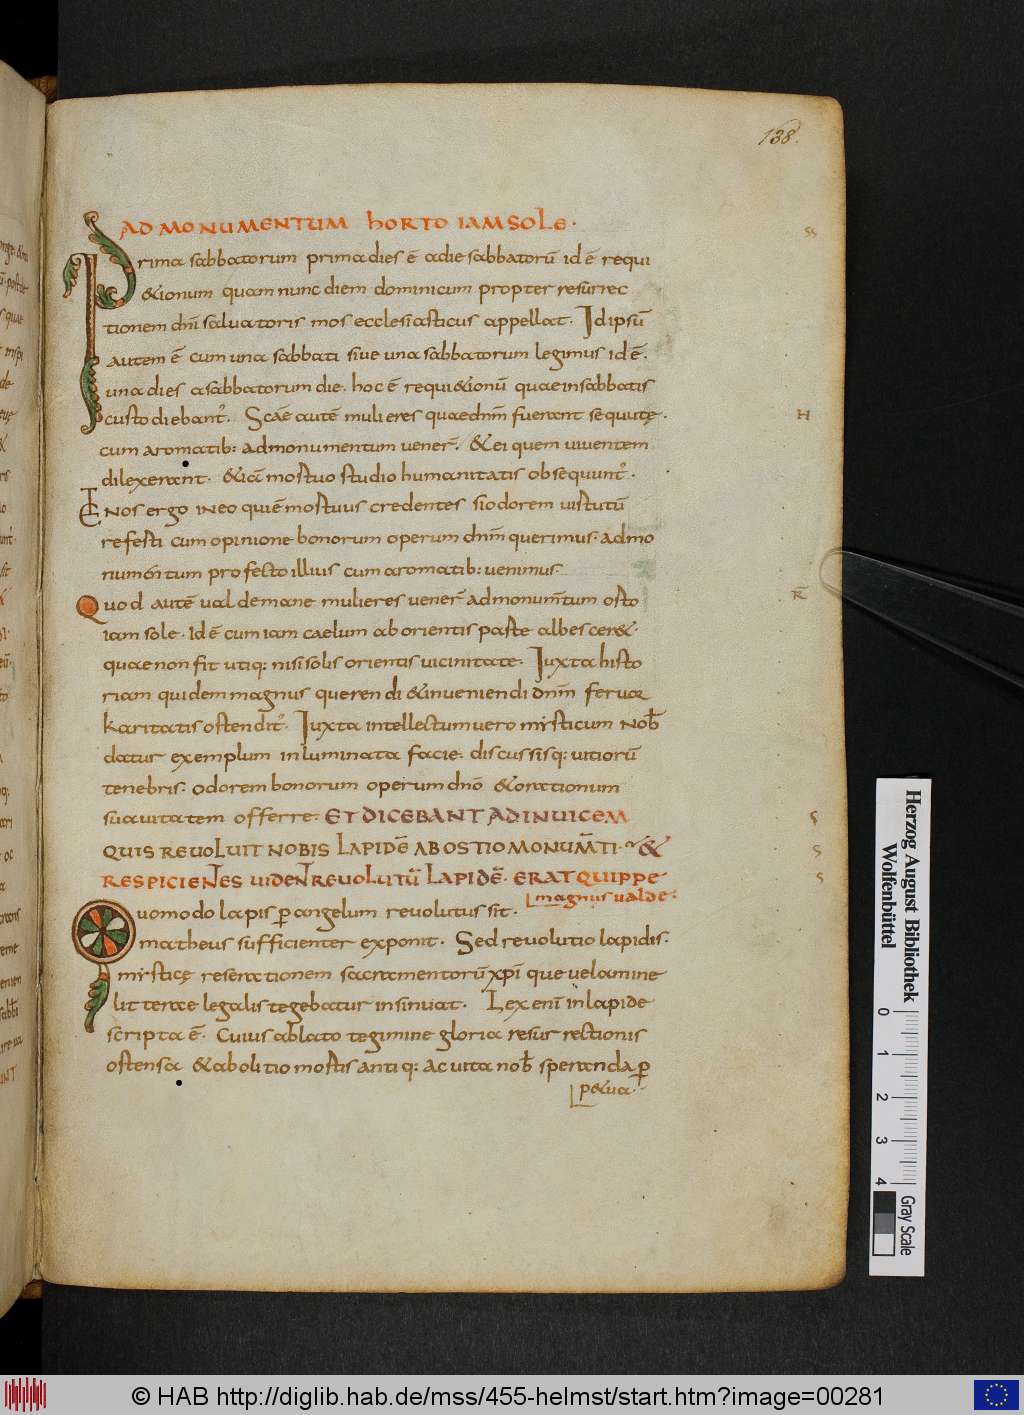 138.
AD MONUMENTUM hORTO IAM SOLE ·
Prima sabbatorum prima dies ē a die sabbatorū id ē requi
&ionum quam nunc diem dominicum propter resurrec
tionem dnī saluatoris mos ecclesiasticus appellat · Id ipsū
autem ē cum una sabbati siue una sabbatorum legimus id ē ·
una dies a sabbatorum die · hoc ē requi&ionū quae in sabbatis
custodiebant᷒ · Scāe autē mulieres quae dnm̄ fuerant sequutę ·
cum aromatib: ad monumentum uener̄ · & ei quem uiuentem
dilexerant · &iā mortuo studio humanitatis obsequunt᷒ ·
Et nos ergo in eo qui ē mortuus credentes si odorem uirtutū
referti cum opinione bonorum operum dnm̄ querimus · ad mo
numentum profecto illius cum aromatib: uenimus ·
Quod autē ualde mane mulieres uener̄ ad monum̄tum orto
iam sole · Id ē cum iam caelum ab orientis parte albescer& ·
quae non fit utiq: nisi solis orientis uicinitate · Iuxta histo
riam quidem magnus querendi & inueniendi dnm̄ feruor
karitatis ostendit᷒ · Iuxta intellectum uero mysticum nob̄
datur exemplum inluminata facie · discussisq: uitiorū
tenebris · odorem bonorum operum dnō & orationum
suauitatem offerre · ET DICEBANT AD INUICEM
QUIS REUOLUIT NOBIS LAPIDĒ AB OSTIO MONUM̄TI · &
RESPICIENTES UIDENT REUOLUTŪ LAPIDĒ · ERAT QUIPPE
magnus ualde ·
Quomodo lapis ꝑ angelum reuolutus sit ·
matheus sufficienter exponit · Sed reuolutio lapidis ·
mysticę reserationem sacramentorū xpī que uelamine
litterae legalis tegebatur insinuat · Lex enī in lapide
scripta ē · Cuius ablato tegimine gloria resurrectionis
ostensa & abolitio mortis antiq: ac uita nob̄ speranda ꝑ
p&ua ·
Herzog August Bibliothek
Wolfenbüttel
0 1 2 3 4
Gray Scale
© HAB http://diglib.hab.de/mss/455-helmst/start.htm?image=00281